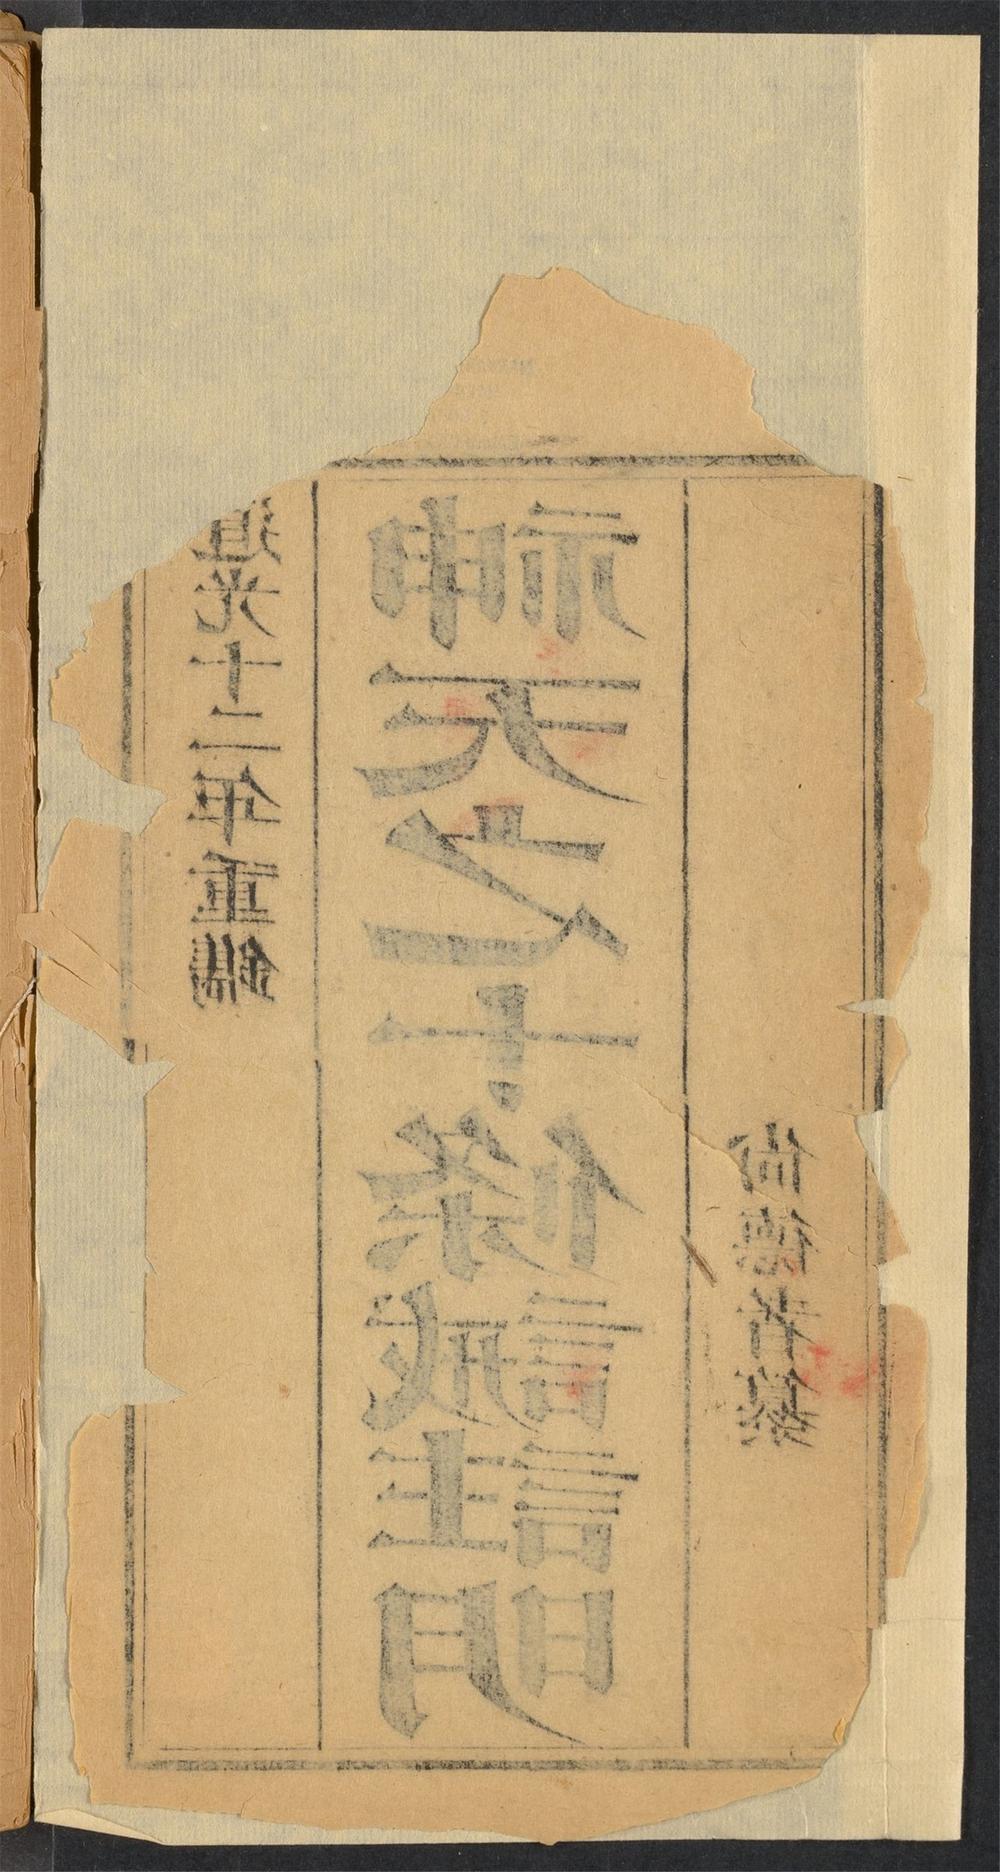 道光十二年重鐫
神天之十條誡註明
尚德者纂